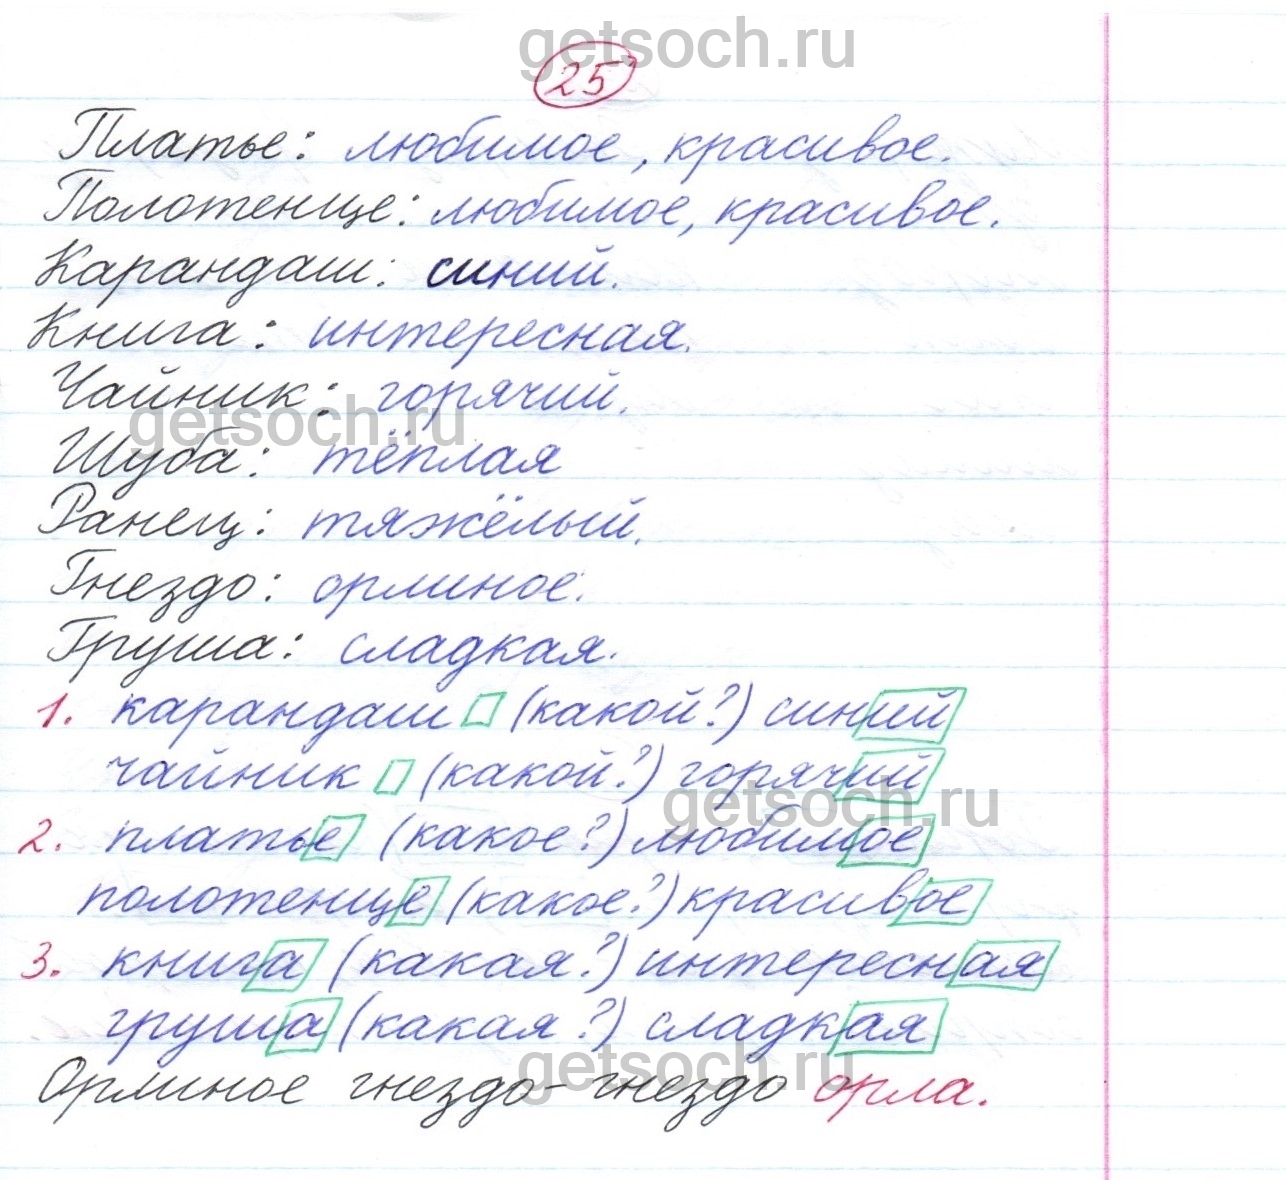 getsoch.ru
25
Платье: любимое, красивое.
Полотенце: любимое, красивое.
Карандаш: синий.
Книга: интересная.
Чайник: горячий.
getsoch.ru
Шуба: тёплая
Ранец: тяжёлый.
Гнездо: орлиное.
Груша: сладкая.
1. карандаш (какой?) синий
чайник (какой?) горячий
getsoch.ru
2. платье (какое?) любимое
полотенце (какое?) красивое
3. книга (какая?) интересная
груша (какая?) сладкая
getsoch.ru
Орлиное гнездо - гнездо орла.